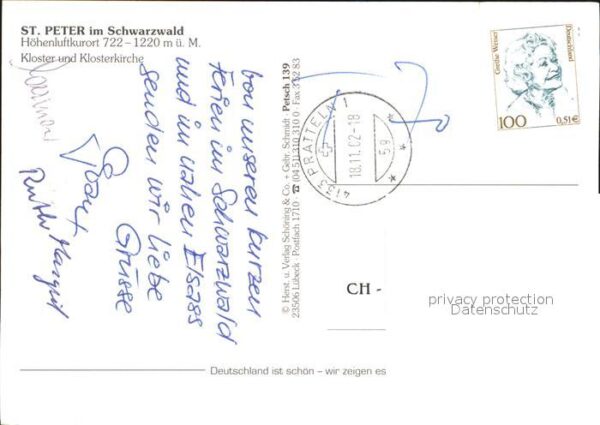 ST. PETER im Schwarzwald
Höhenluftkurort 722 – 1220 m ü. M.
Kloster und Klosterkirche
von unseren kurzen
Ferien im Schwarzwald
und im nahen Elsass
senden wir liebe
Grüsse
Ruth Margrit
© Herst. u. Verlag Schöning & Co. + Gebr. Schmidt · Petsch 139
23506 Lübeck · Postfach 1710 · ☎ (04 51) 310 310 0 · Fax 3 62 83
4133 PRATTELN 1
18.11.02-18
59
Grethe Weiser
Deutschland
100
0,51€
CH -
privacy protection
Datenschutz
Deutschland ist schön – wir zeigen es